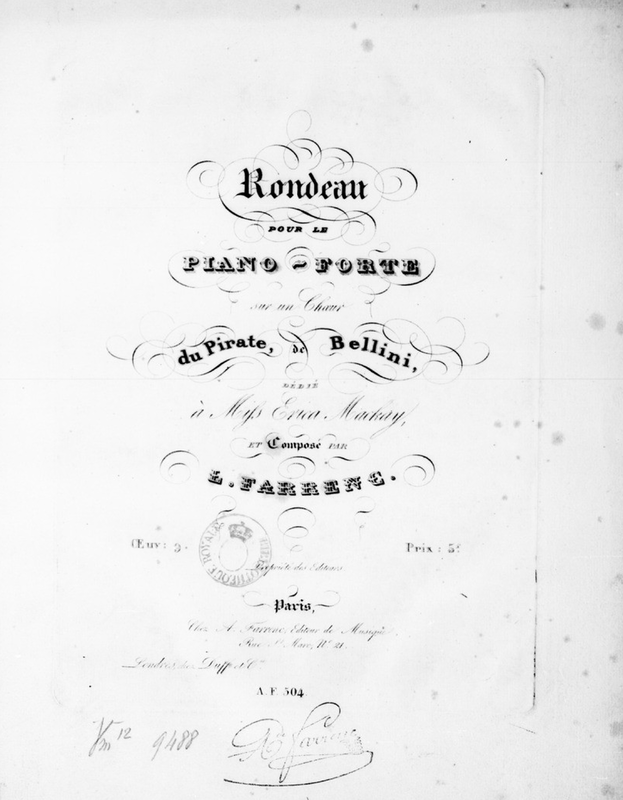 Rondeau
POUR LE
PIANO - FORTE
sur un Chœur
du Pirate, de Bellini,
DÉDIÉ
à Miss Erica Mackay,
ET Composé PAR
L. FARRENC.
Œuv: 3.
Prix: 5f
BIBLIOTHEQUE ROYALE
Propriété des Editeurs
Paris,
Chez A. Farrenc, Editeur de Musique
Rue St Marc, No 21.
Londres, chez Duff et Cie
A.F. 504.
Vm 12 9488
Farrenc